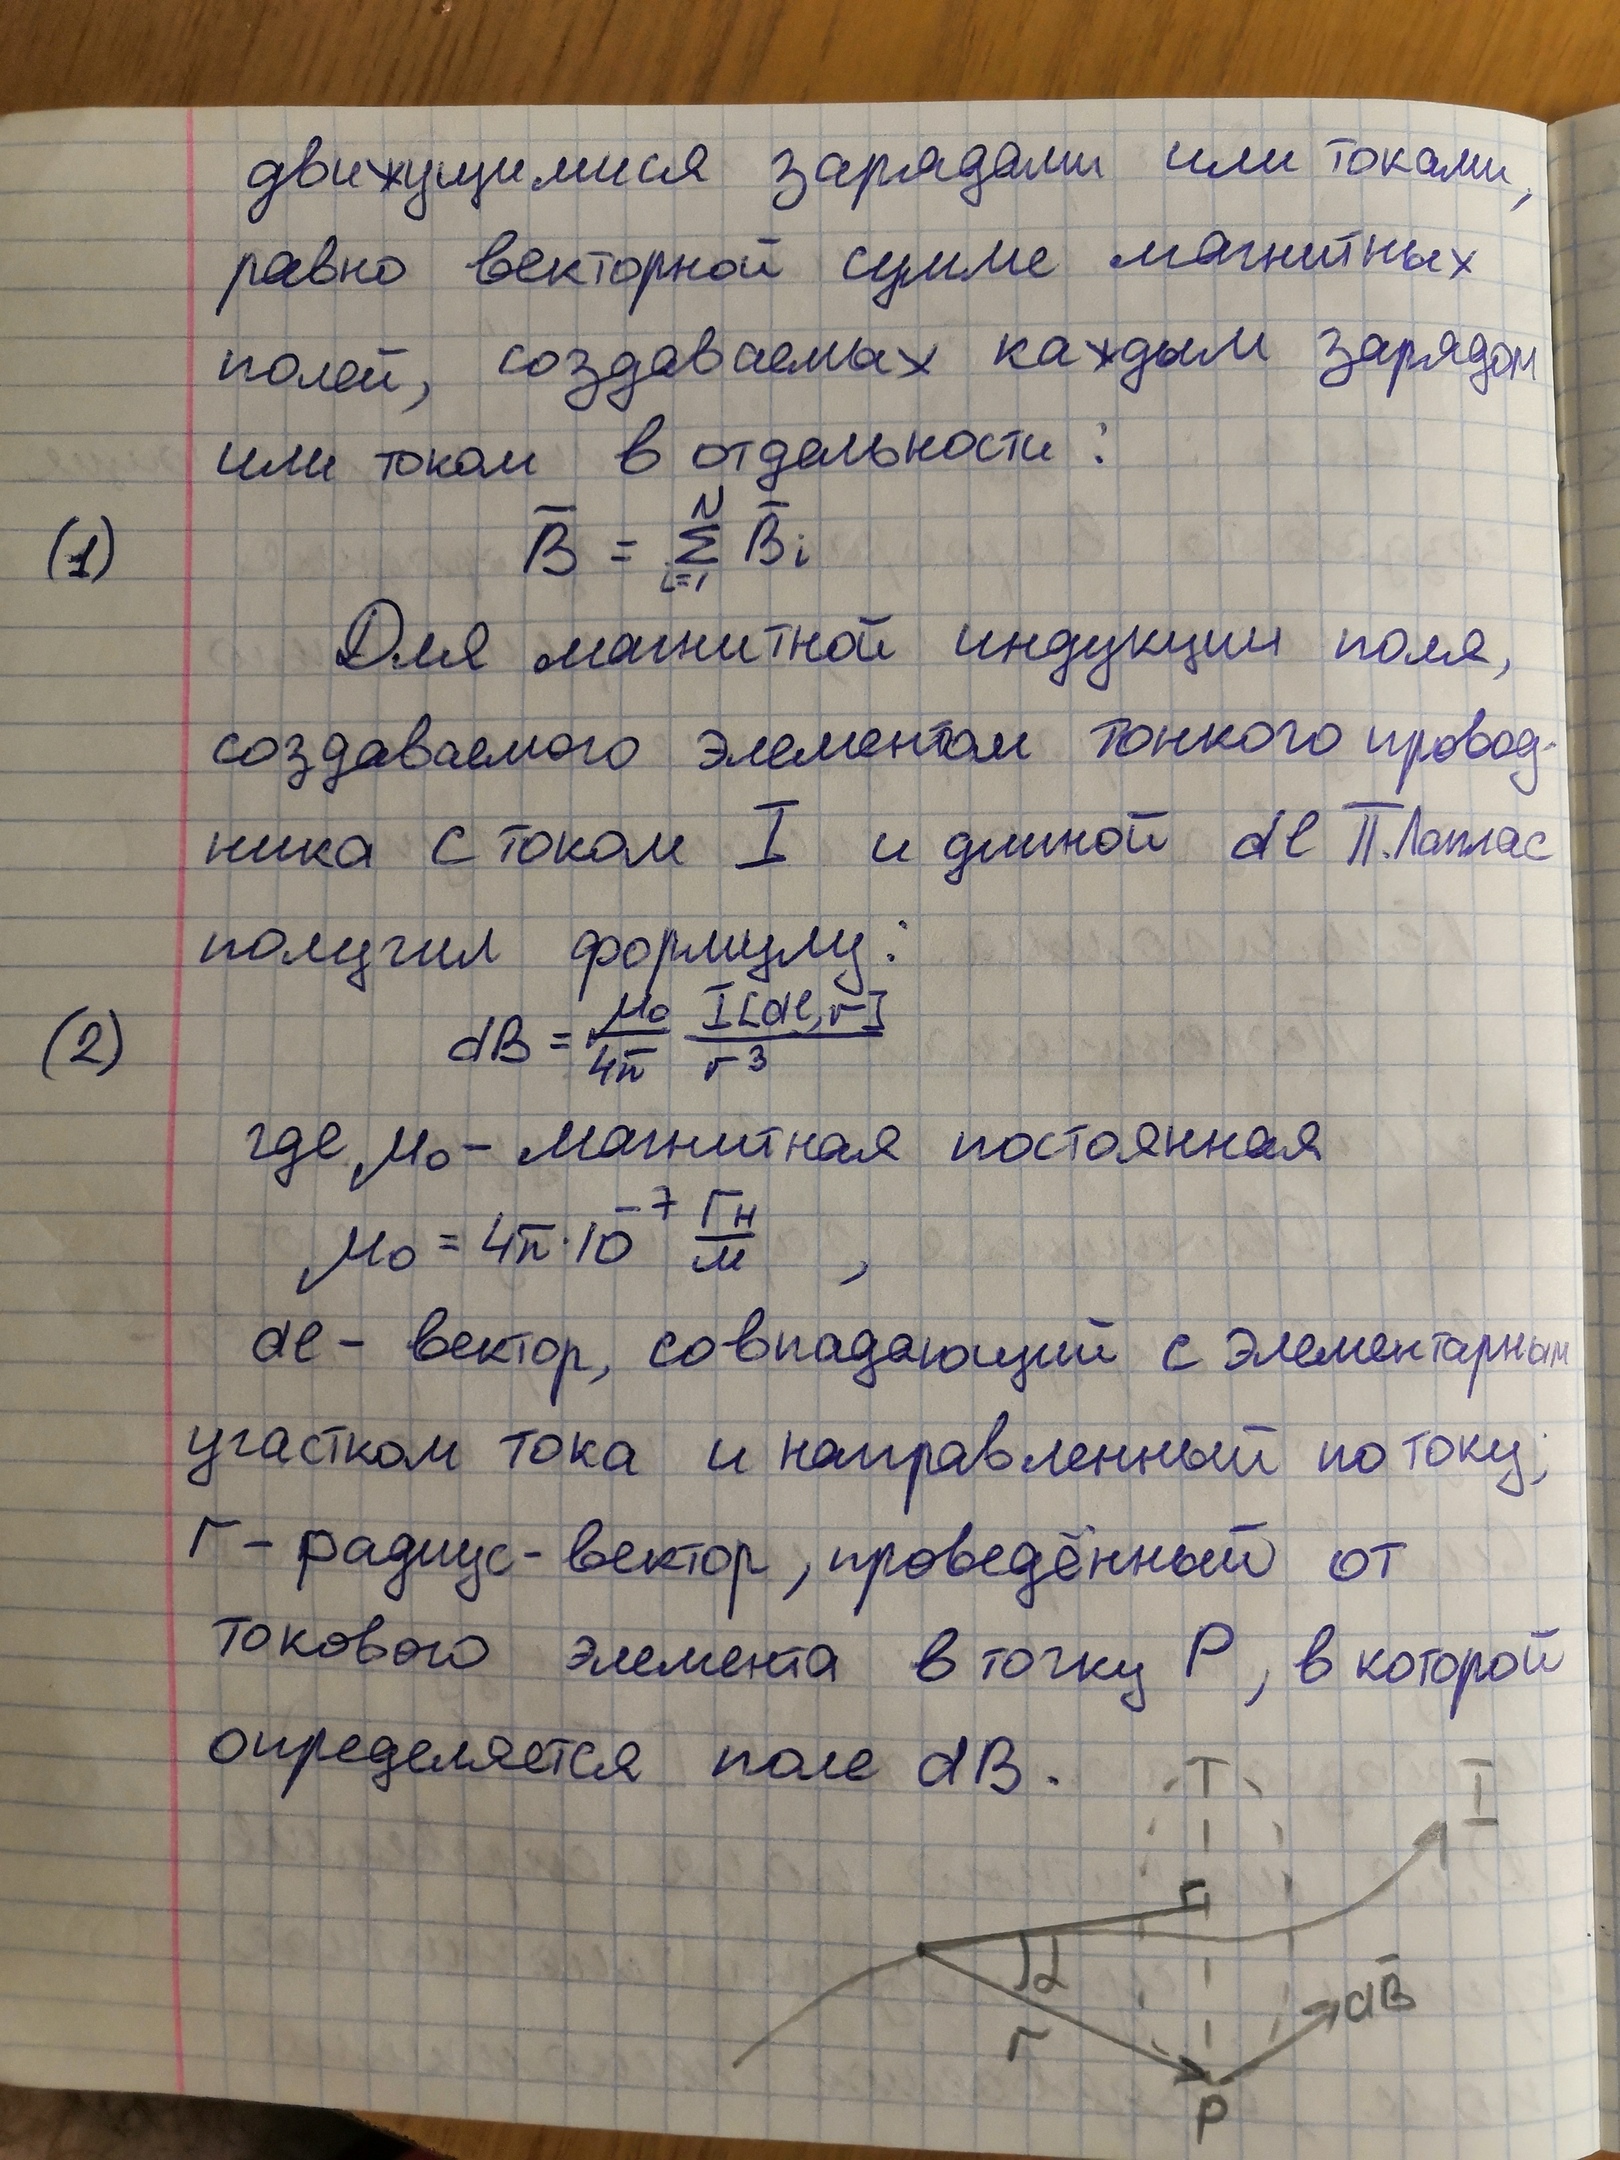 движущимися зарядами или токами,
равно векторной сумме магнитных
полей, создаваемых каждым зарядом
или током в отдельности:
(1) B̄ = Σ_{i=1}^{N} B̄i
Для магнитной индукции поля,
создаваемого элементом тонкого провод-
ника с током I и длиной dl П. Лаплас
получил формулу:
(2) dB = μ₀/4π I[dl,r]/r³
где μ₀ - магнитная постоянная
μ₀ = 4π·10⁻⁷ Гн/м ,
dl - вектор, совпадающий с элементарным
участком тока и направленный по току;
r - радиус-вектор, проведённый от
токового элемента в точку P, в которой
определяется поле dB.
I
α
dB̄
r
P